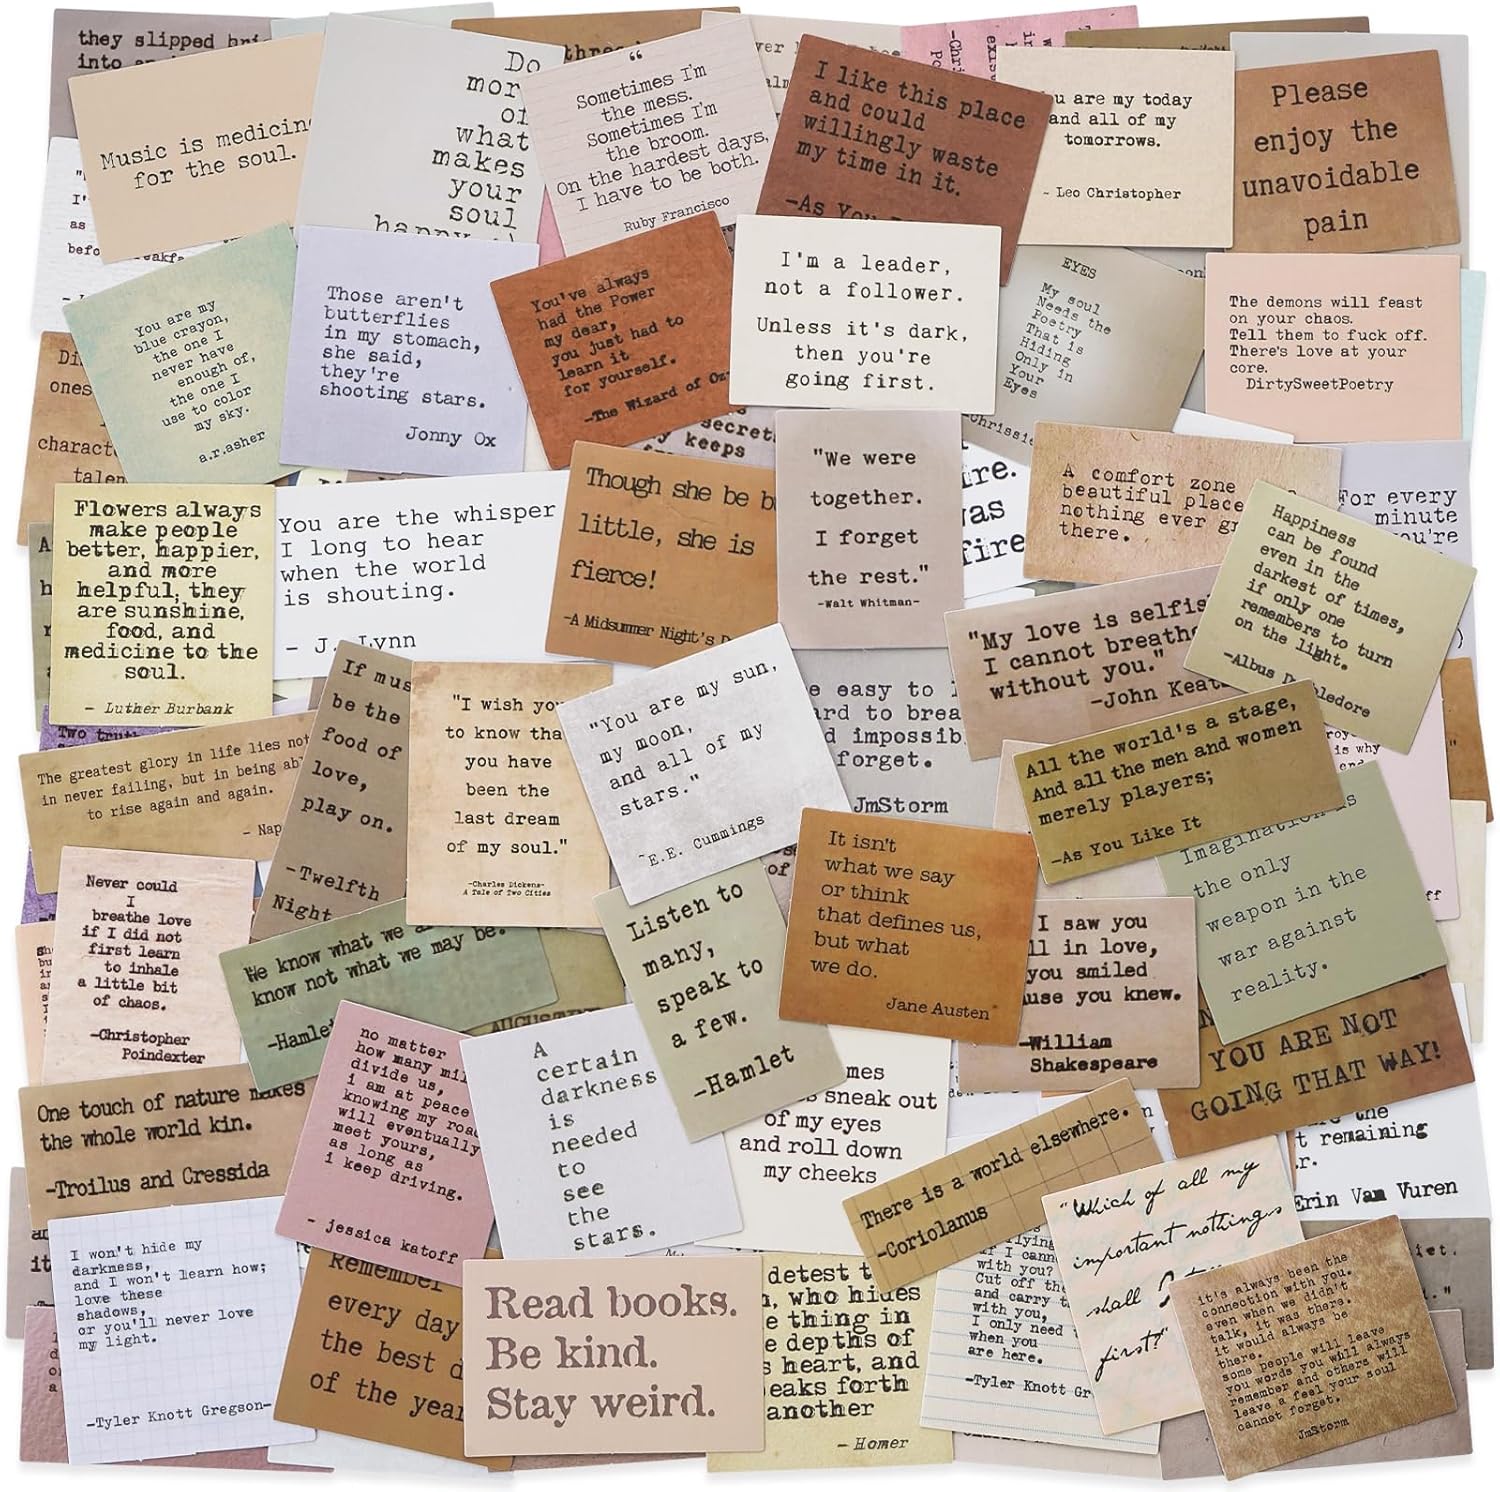 they slipped
into
Music is
for the soul.
Do
of
what
makes
your
soul
Sometimes I'm
the mess.
Sometimes I'm
the broom.
On the hardest days,
I have to be both.
Ruby Francisco
I like this place
and could
willingly waste
my time in it.
-As You
are my today
and all of my
tomorrows.
- Leo Christopher
Please
enjoy the
unavoidable
pain
You are my
blue crayon,
the one I
never have
enough of,
the one I
use to color
my sky.
a.r.asher
Those aren't
butterflies
in my stomach,
she said,
they're
shooting stars.
Jonny Ox
You've always
had the Power
my dear,
you just had to
learn it
for yourself.
-The Wizard of Oz
I'm a leader,
not a follower.
Unless it's dark,
then you're
going first.
EYES
My soul
Needs the
Poetry
That is
Hiding
Only in
Your
Eyes
The demons will feast
on your chaos.
Tell them to fuck off.
There's love at your
core.
DirtySweetPoetry
keeps
Flowers always
make people
better, happier,
and more
helpful, they
are sunshine,
food, and
medicine to the
soul.
- Luther Burbank
You are the whisper
I long to hear
when the world
is shouting.
- J. Lynn
Though she be
little, she is
fierce!
-A Midsummer Night's
"We were
together.
I forget
the rest."
-Walt Whitman-
fire
A comfort zone
beautiful place
nothing ever
there.
For every
minute
you're
"My love is
I cannot breathe
without you."
-John
Happiness
can be found
even in the
darkest of times,
if only one
remembers to turn
on the light.
-Albus
The greatest glory in life lies not
in never failing, but in being
to rise again and again.
If
be the
food of
love,
play on.
-Twelfth
Night
"I wish you
to know
you have
been the
last dream
of my soul."
-Charles Dickens-
A Tale of Two Cities
"You are my sun,
my moon,
and all of my
stars."
~E.E. Cummings
easy to
to
impossib
forget.
JmStorm
All the world's a stage,
And all the men and women
merely players;
-As You Like It
Imagination is
the only
weapon in the
war against
reality.
Never could
I
breathe love
if I did not
first learn
to inhale
a little bit
of chaos.
-Christopher
Poindexter
We know what we
know not what we may be.
Listen to
many,
speak to
a few.
-Hamlet
It isn't
what we say
or think
that defines us,
but what
we do.
Jane Austen
I saw you
in love,
you smiled
you knew.
-William
Shakespeare
YOU ARE NOT
GOING THAT WAY!
One touch of nature makes
the whole world kin.
-Troilus and Cressida
no matter
how many
divide us,
i am at peace
knowing my
will eventually
meet yours,
as long as
i keep driving.
- jessica katoff
A
certain
darkness
is
needed
to
see
the
stars.
sneak out
of my eyes
and roll down
my cheeks
There is a world elsewhere.
-Coriolanus
the
remaining
Erin Van Vuren
I won't hide my
darkness,
and I won't learn how;
love these
shadows,
or you'll never love
my light.
-Tyler Knott Gregson-
Remember
every day
the best
of the
Read books.
Be kind.
Stay weird.
detest
who hides
thing in
depths of
heart, and
forth
another
- Homer
if I
with you?
Cut off
and carry
with you,
I only need
when you
are here.
-Tyler Knott
"Which of all my
important nothings
shall
first?"
it's always been the
connection with you.
even when we didn't
talk, it was there.
it would always be
there.
some people will leave
you words you will always
remember and others will
leave a feel your soul
cannot forget.
JmStorm